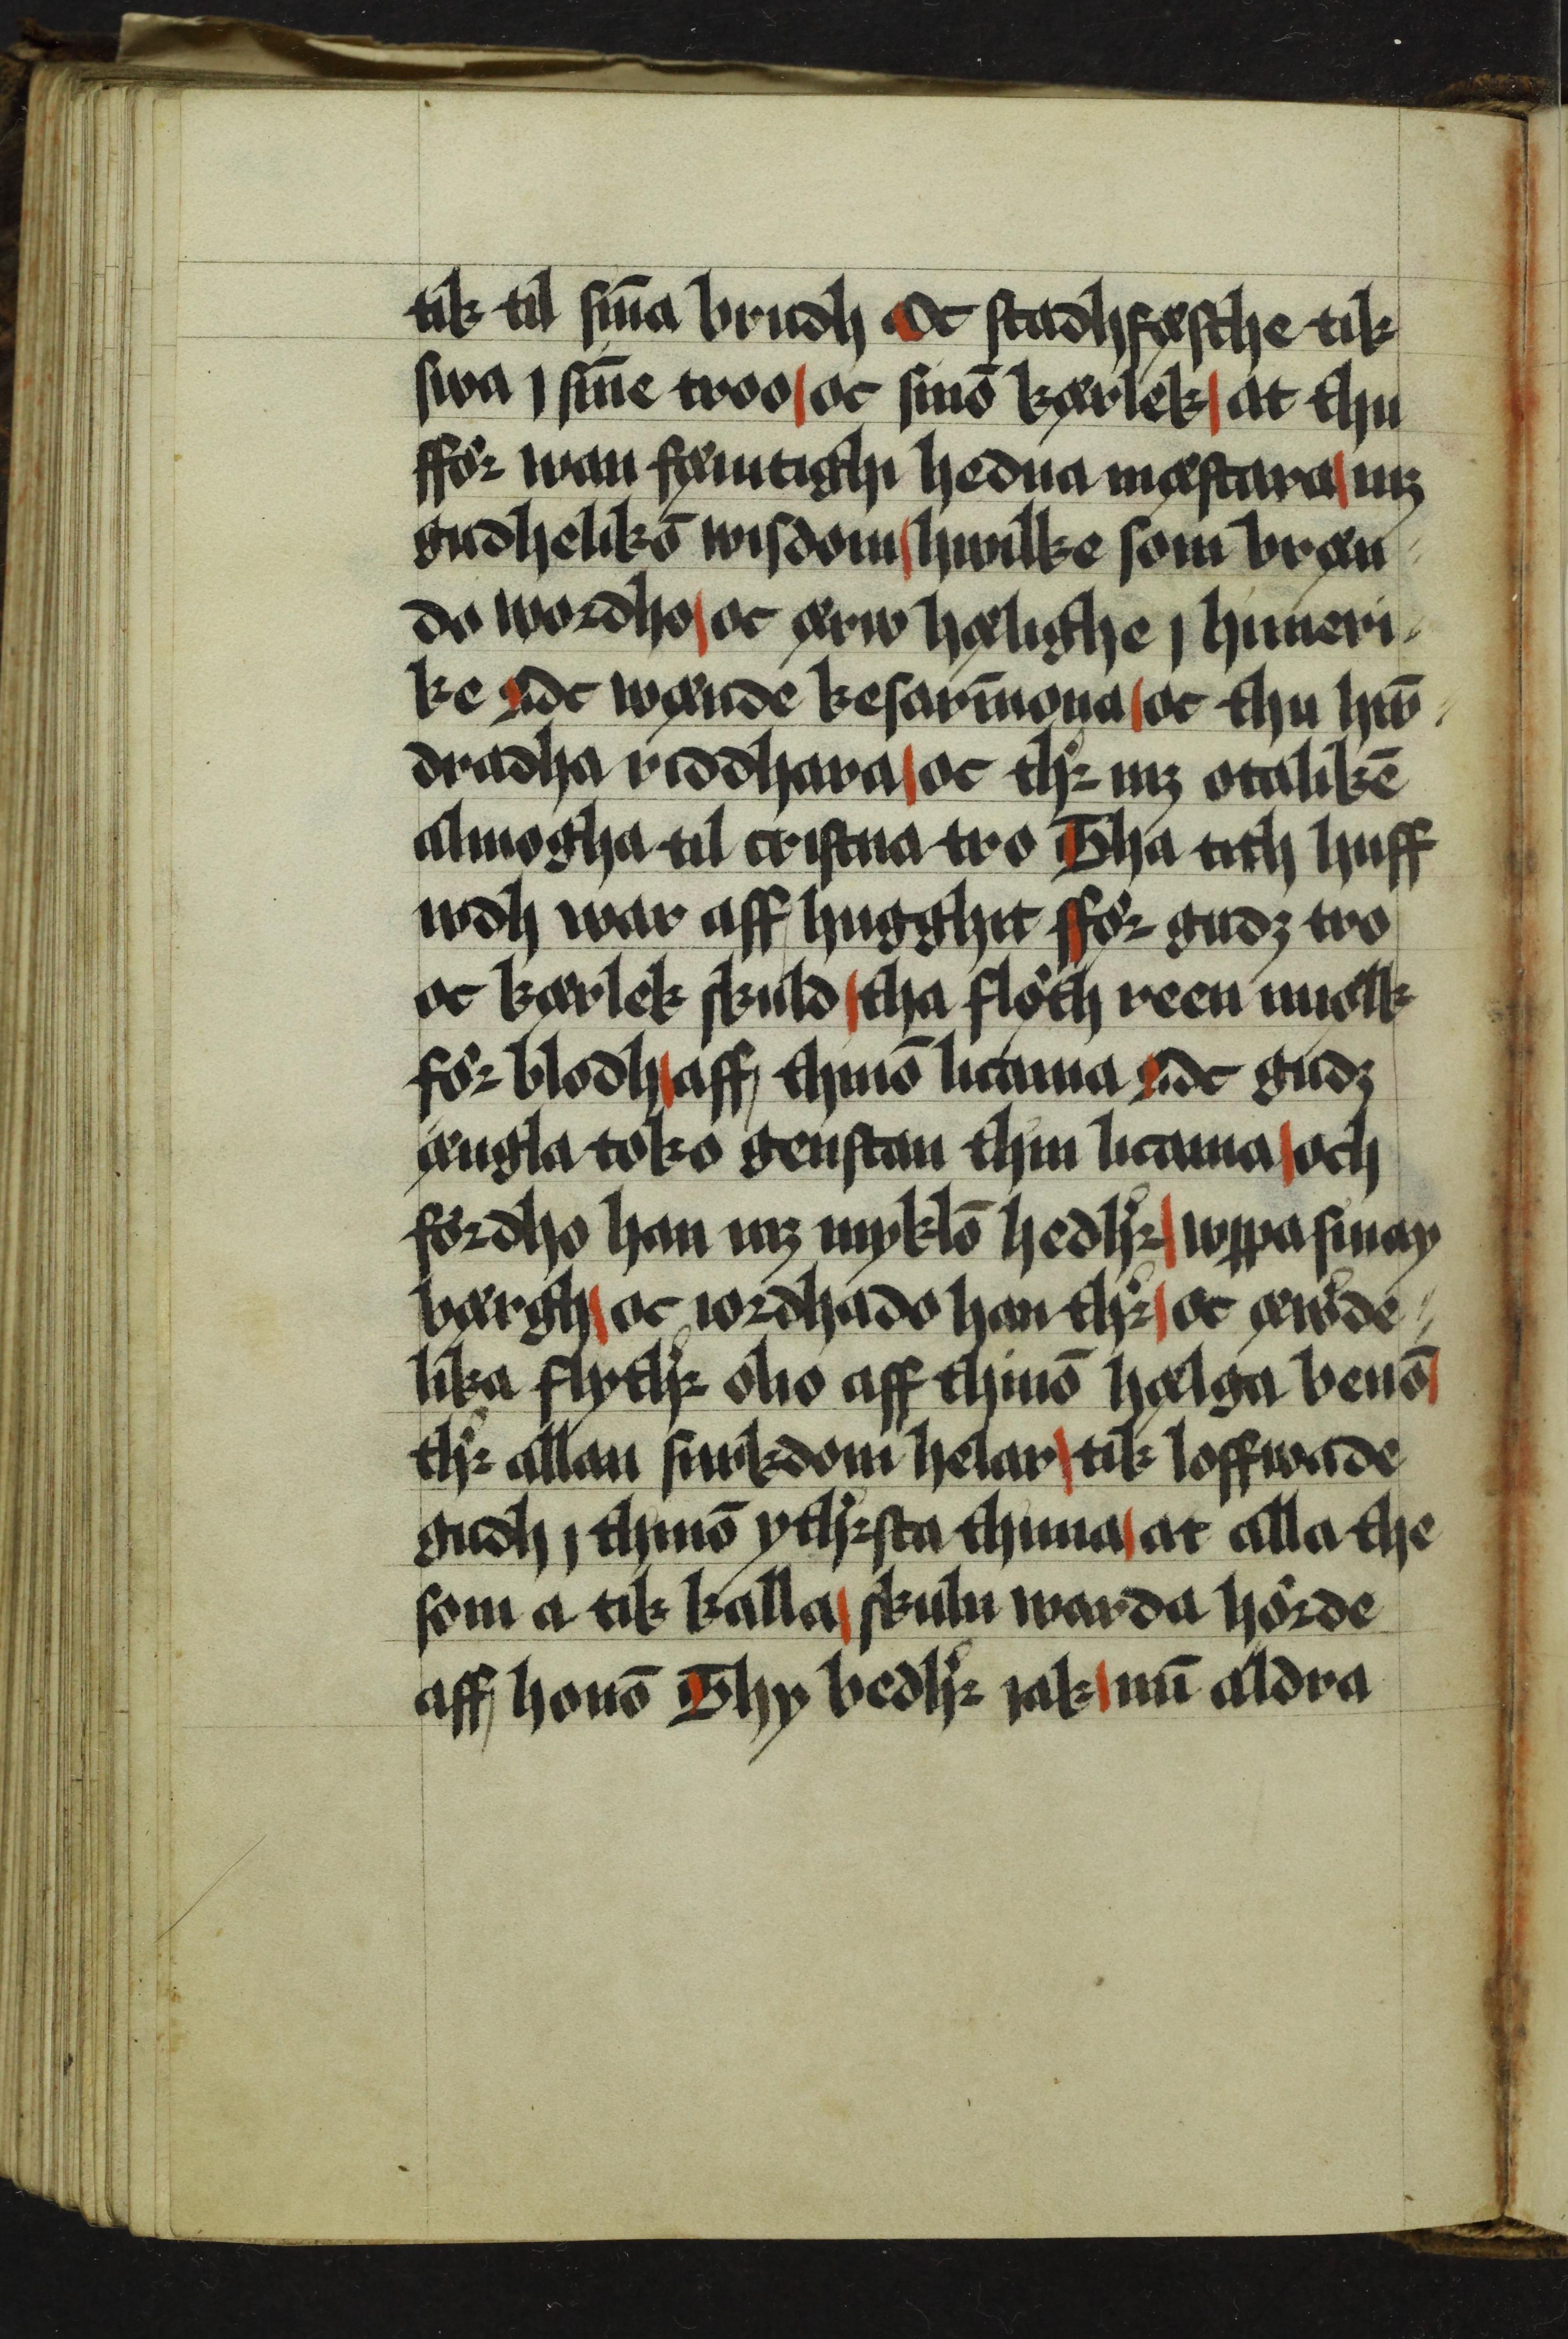 tik til sin̄a brudh Oc stadhfæsthe tik
swa j sin̄e troo / oc sinō kærlek / at thu
ffór wan fæmtighi hedna mæstara / mꝫ
gudhelikō wisdom / hwilke som bræn //
do wordho / oc ærw hælighe j himeri //
ke Oc wænde kesarin̄ona / oc thu hw̄ //
dradha riddhara / oc thr̄ mꝫ otalikē
almogha til cristna tro Tha tith huff
wdh war aff hugghit ffór gudꝫ tro
oc kærlek skuld / tha flóth reen miælk
fór blodh / aff thinō licama Oc gudꝫ
ængla toko genstan thin licama / och
fórdho han mꝫ myklō hedhr̄ / wppa sinay
bærgh / oc iordhado han thr̄ / oc æw̄de //
lika flythr̄ olio aff thinō hælga benō /
thr̄ allan siwkdom helar / tik loffwade
gudh j thinō ythr̄sta thima / at alla the
som a tik kalla / skulu warda hórde
aff honō Thy bedhr̄ iak / min̄ aldra